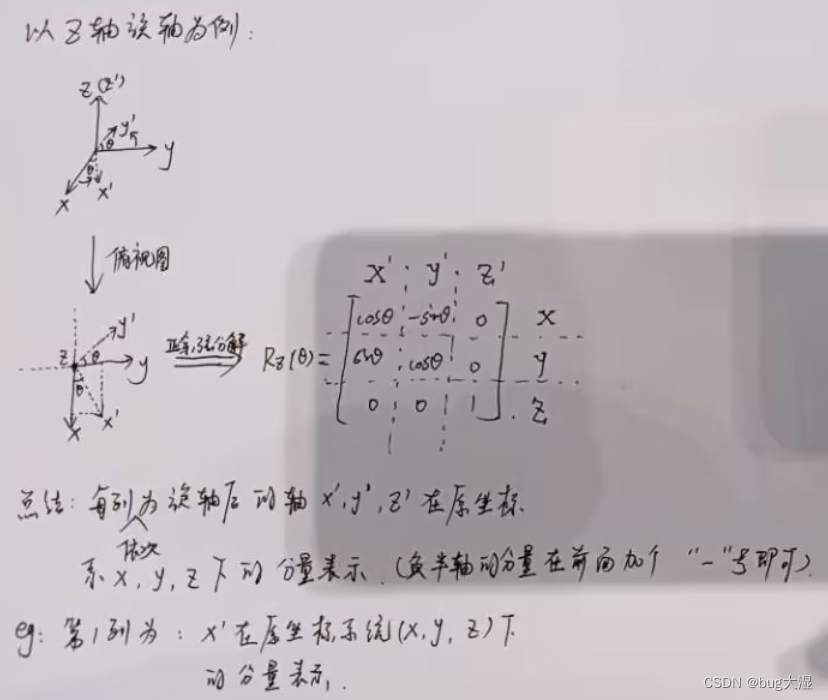 以Z轴旋轴为例:
Z(Z')
y'
θ
y
θ
x
x'
俯视图
y'
Z
θ
y
θ
x
x'
正余弦分解
x' y' z'
Rz(θ)=
cosθ -sinθ 0 x
sinθ cosθ 0 y
0 0 1 . z
总结: 每列为旋轴后的轴 x', y', z' 在原坐标
依次
系 x, y, z 下的分量表示. (负半轴的分量在前面加个 "-"号即可)
eg: 第1列为: x' 在原坐标系统(x, y, z)下
的分量表示.
CSDN @bug大湿